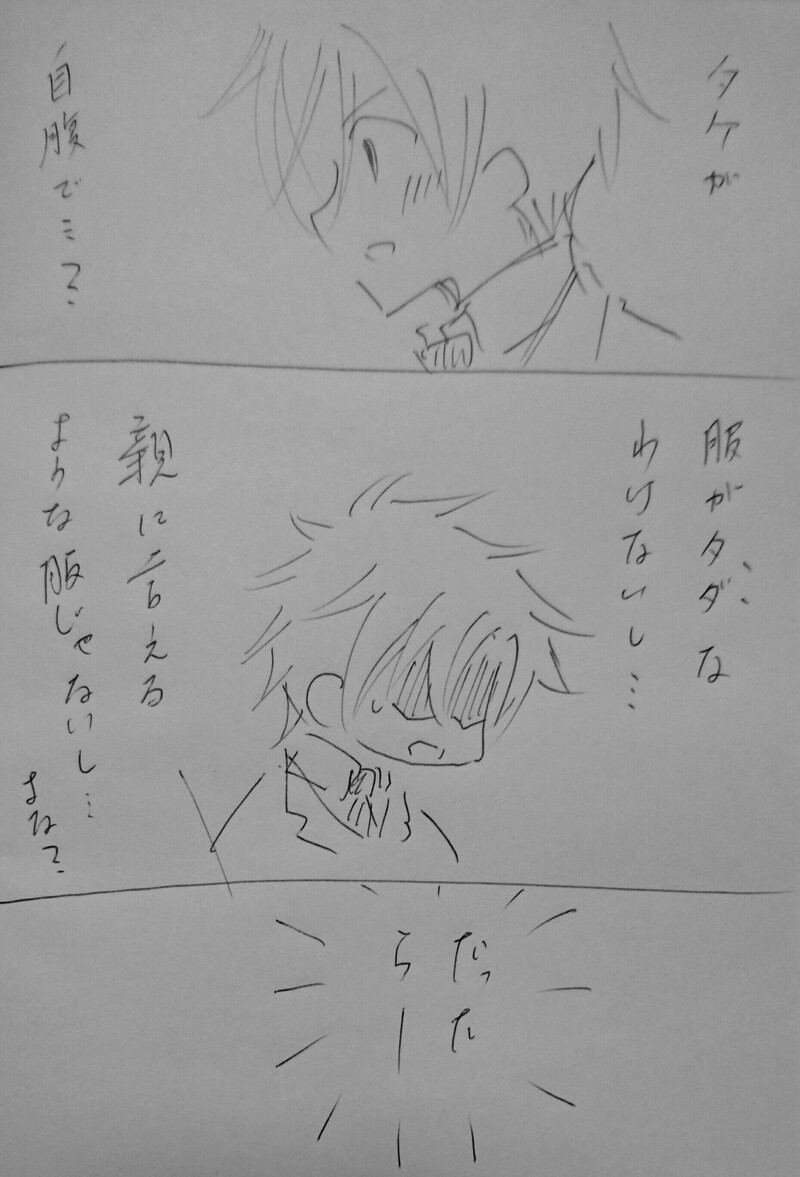 タケが
自腹で…？
服がタダな
わけないし…
親に言える
ような服じゃないし…
まなて
だった
らー